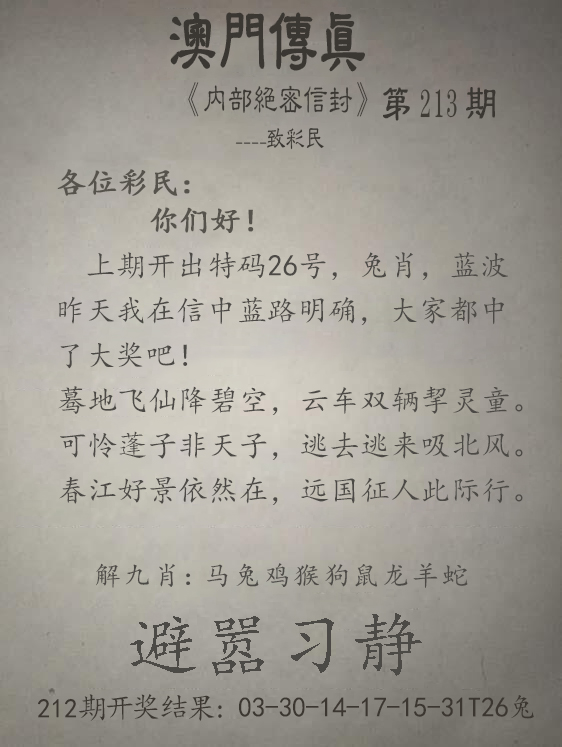 澳門傳真
《内部絕密信封》第213期
----致彩民
各位彩民：
你们好！
上期开出特码26号，兔肖，蓝波
昨天我在信中蓝路明确，大家都中
了大奖吧！
蓦地飞仙降碧空，云车双辆挈灵童。
可怜蓬子非天子，逃去逃来吸北风。
春江好景依然在，远国征人此际行。
解九肖：马兔鸡猴狗鼠龙羊蛇
避嚣习静
212期开奖结果：03-30-14-17-15-31T26兔